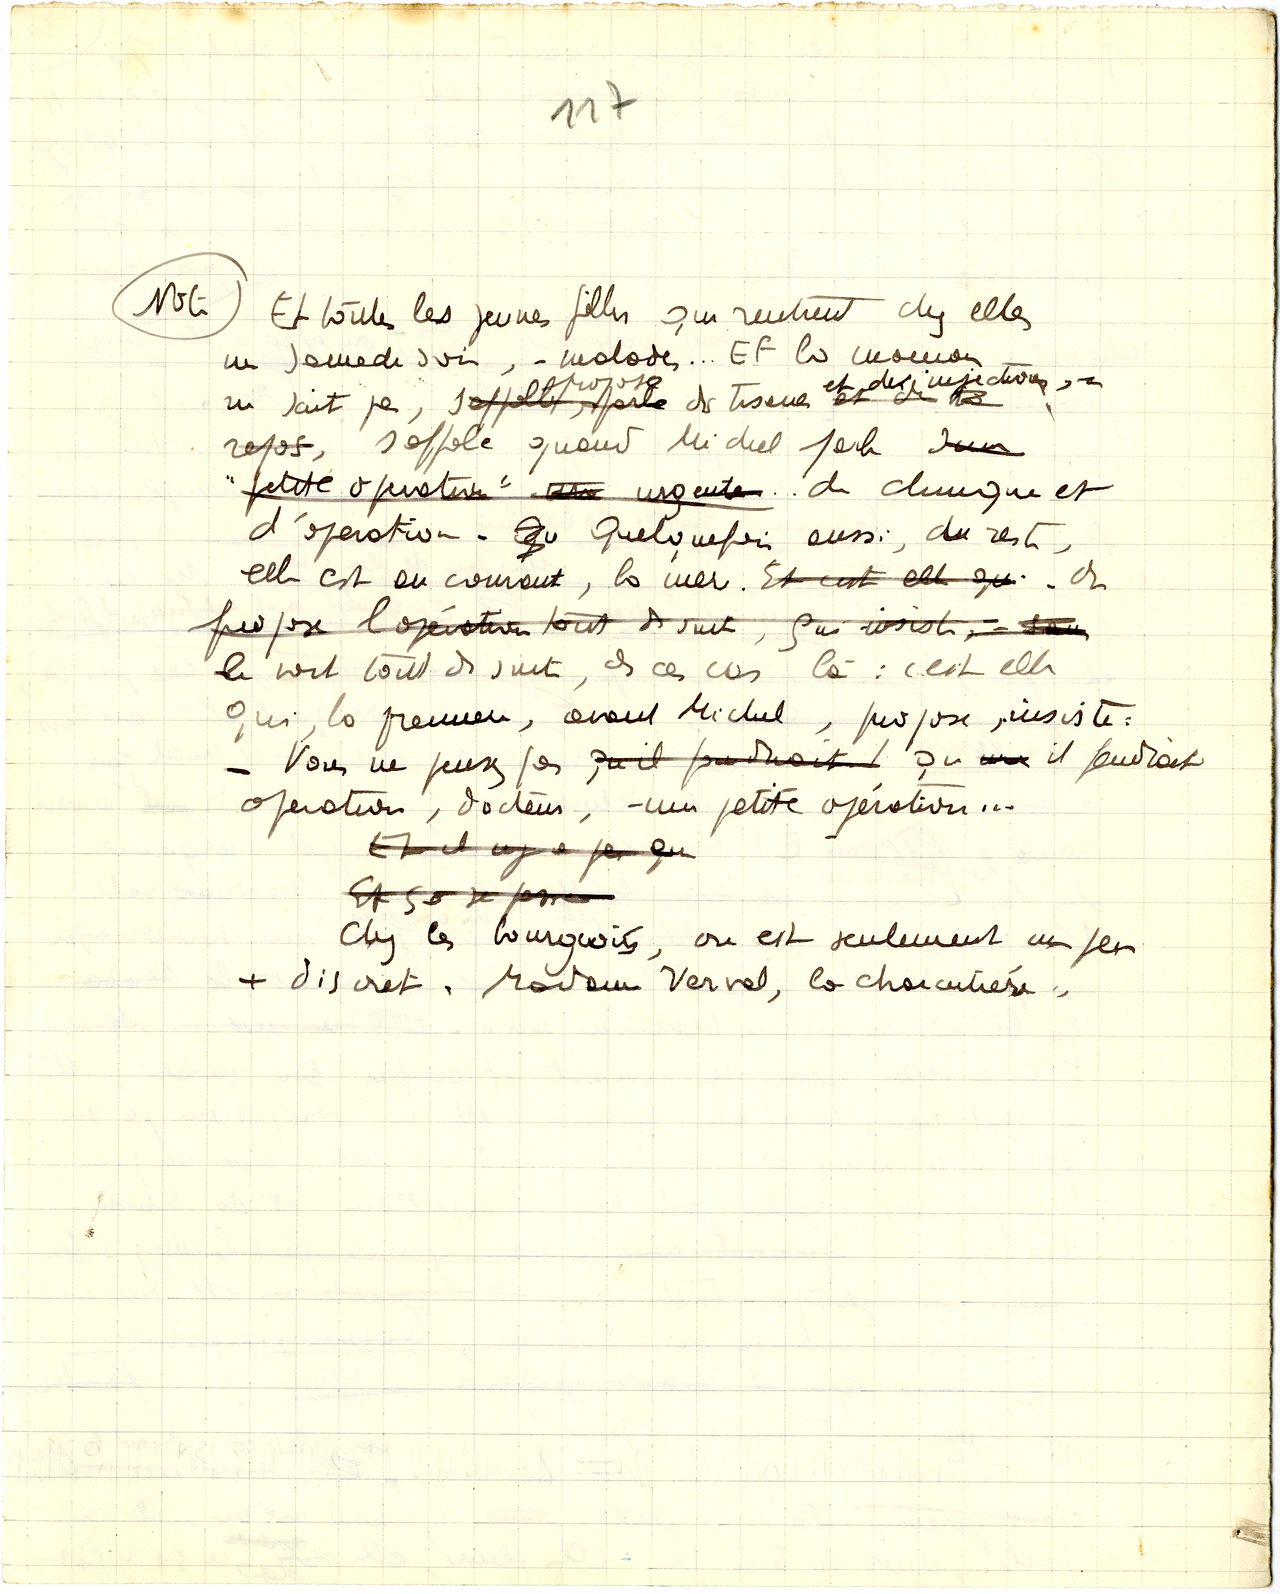 117
Note Et toutes les jeunes filles qui rentrent chez elles
un samedi soir, - malades... Et la maman
propose et des injections, -
ne sait pas, s'affole, parle de tisanes et de
repos, s'affole quand Michel parle d'une
"petite opération" urgente... de clinique et
d'opération. Quelquefois aussi, du reste,
elle est au courant, la mère. Et c'est elle qui
propose l'opération tout de suite, qui insiste, -
le voit tout de suite, ces cas là : c'est elle
qui, la première, avant Michel, propose, insiste :
- Vous ne pensez pas qu'il faudrait ! qu'une il faudrait
opération, docteur, - une petite opération...
Et il n'y a pas que
Et ça se passe
Chez les bourgeois, on est seulement un peu
+ discret. Madame Verval, la charcutière..